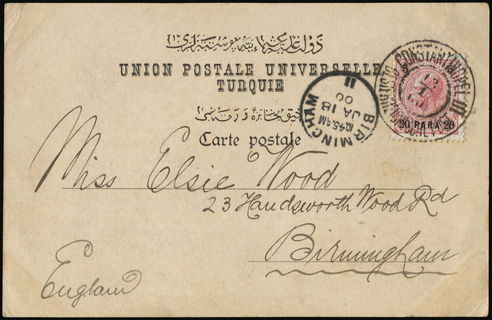 UNION POSTALE UNIVERSELLE
TURQUIE
Carte postale
CONSTANTINOPEL III
20 PARA 20
BIRMINGHAM
10.45AM
JA 18
00
II
Miss Elsie Wood
23 Handsworth Wood Rd
Birmingham
England